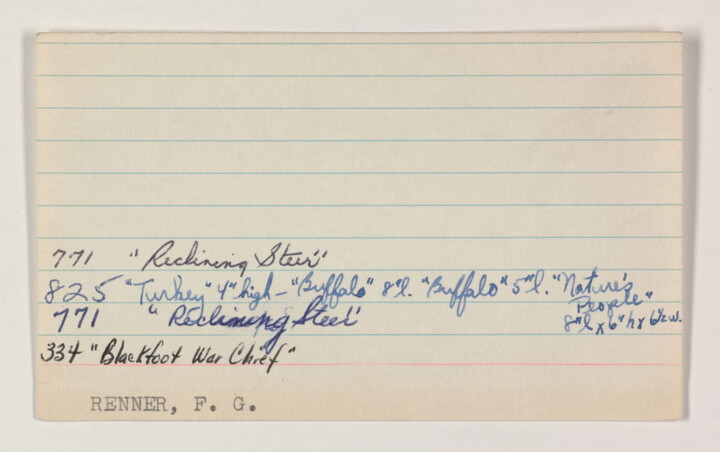 771 "Reclining Steer"
825 "Turkey" 4" high - "Buffalo" 8"l. "Buffalo" 5"l. "Nature's
People"
8"l x 6"h x 6½w.
771 "Reclining Steer"
334 "Blackfoot War Chief"
RENNER, F. G.